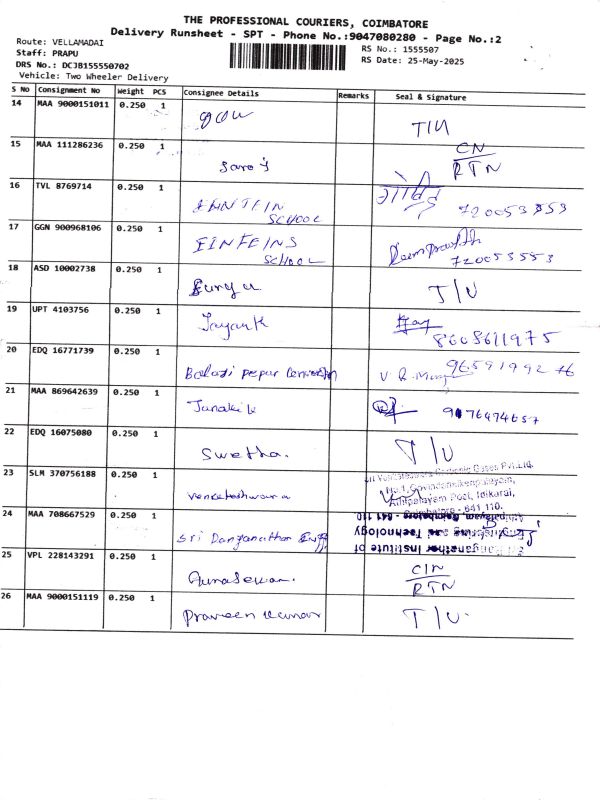 THE PROFESSIONAL COURIERS, COIMBATORE
Delivery Runsheet - SPT - Phone No.:9047080280 - Page No.:2
Route: VELLAMADAI
RS No.: 1555507
Staff: PRAPU
RS Date: 25-May-2025
DRS No.: DCJB155550702
Vehicle: Two Wheeler Delivery
S No Consignment No Weight PCS Consignee Details Remarks Seal & Signature
14 MAA 9000151011 0.250 1 T/U
15 MAA 111286236 0.250 1 Saroj CN RTN
16 TVL 8769714 0.250 1 SCHOOL
17 GGN 900968106 0.250 1 EINFEINS SCHOOL 720053553
18 ASD 10002738 0.250 1 Surya T/U
19 UPT 4103756 0.250 1 Jayank 8608611975
20 EDQ 16771739 0.250 1 Balaji peper 9659199276
21 MAA 869642639 0.250 1 Janaki k 9176474657
22 EDQ 16075080 0.250 1 Swetha. T/U
23 SLM 370756188 0.250 1 Venkateshwara Sri Venkateswara Carbonic Gases Pvt.Ltd.
No.1, Govindanaickenpalayam,
Athipalayam Post, Idikarai,
Coimbatore - 641 110.
24 MAA 708667529 0.250 1 Sri Ranganathar Engg
Sri Ranganathar Institute of
Engineering and Technology
Athipalayam, Coimbatore - 641 110
25 VPL 228143291 0.250 1 Gunasewan. CN RTN
26 MAA 9000151119 0.250 1 Praveen Kumar T/U